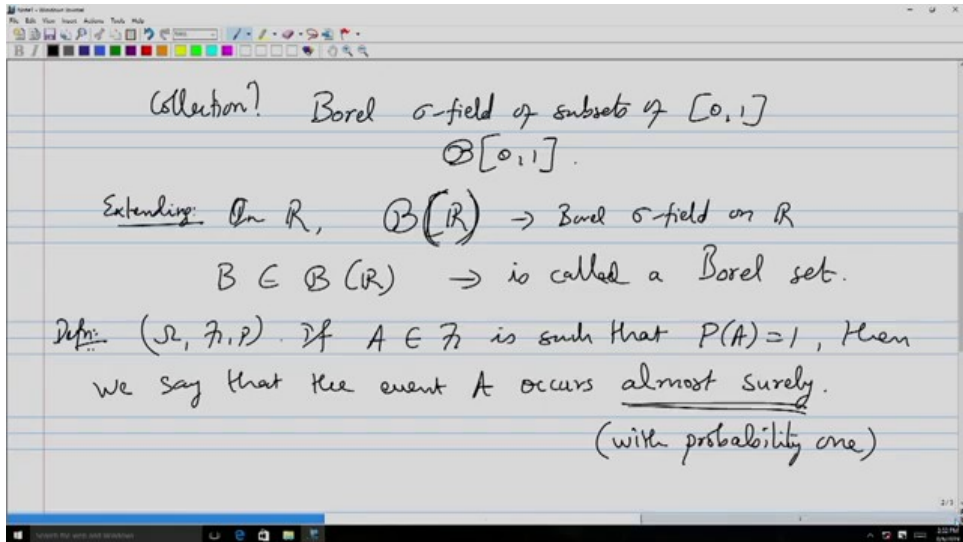 Collection? Borel σ-field of subsets of [0,1]
𝓑[0,1].
Extending: On ℝ, 𝓑(ℝ) → Borel σ-field on ℝ
B ∈ 𝓑(ℝ) → is called a Borel set.
Defn: (Ω, ℱ, P). If A ∈ ℱ is such that P(A)=1, then
we say that the event A occurs almost surely.
(with probability one)